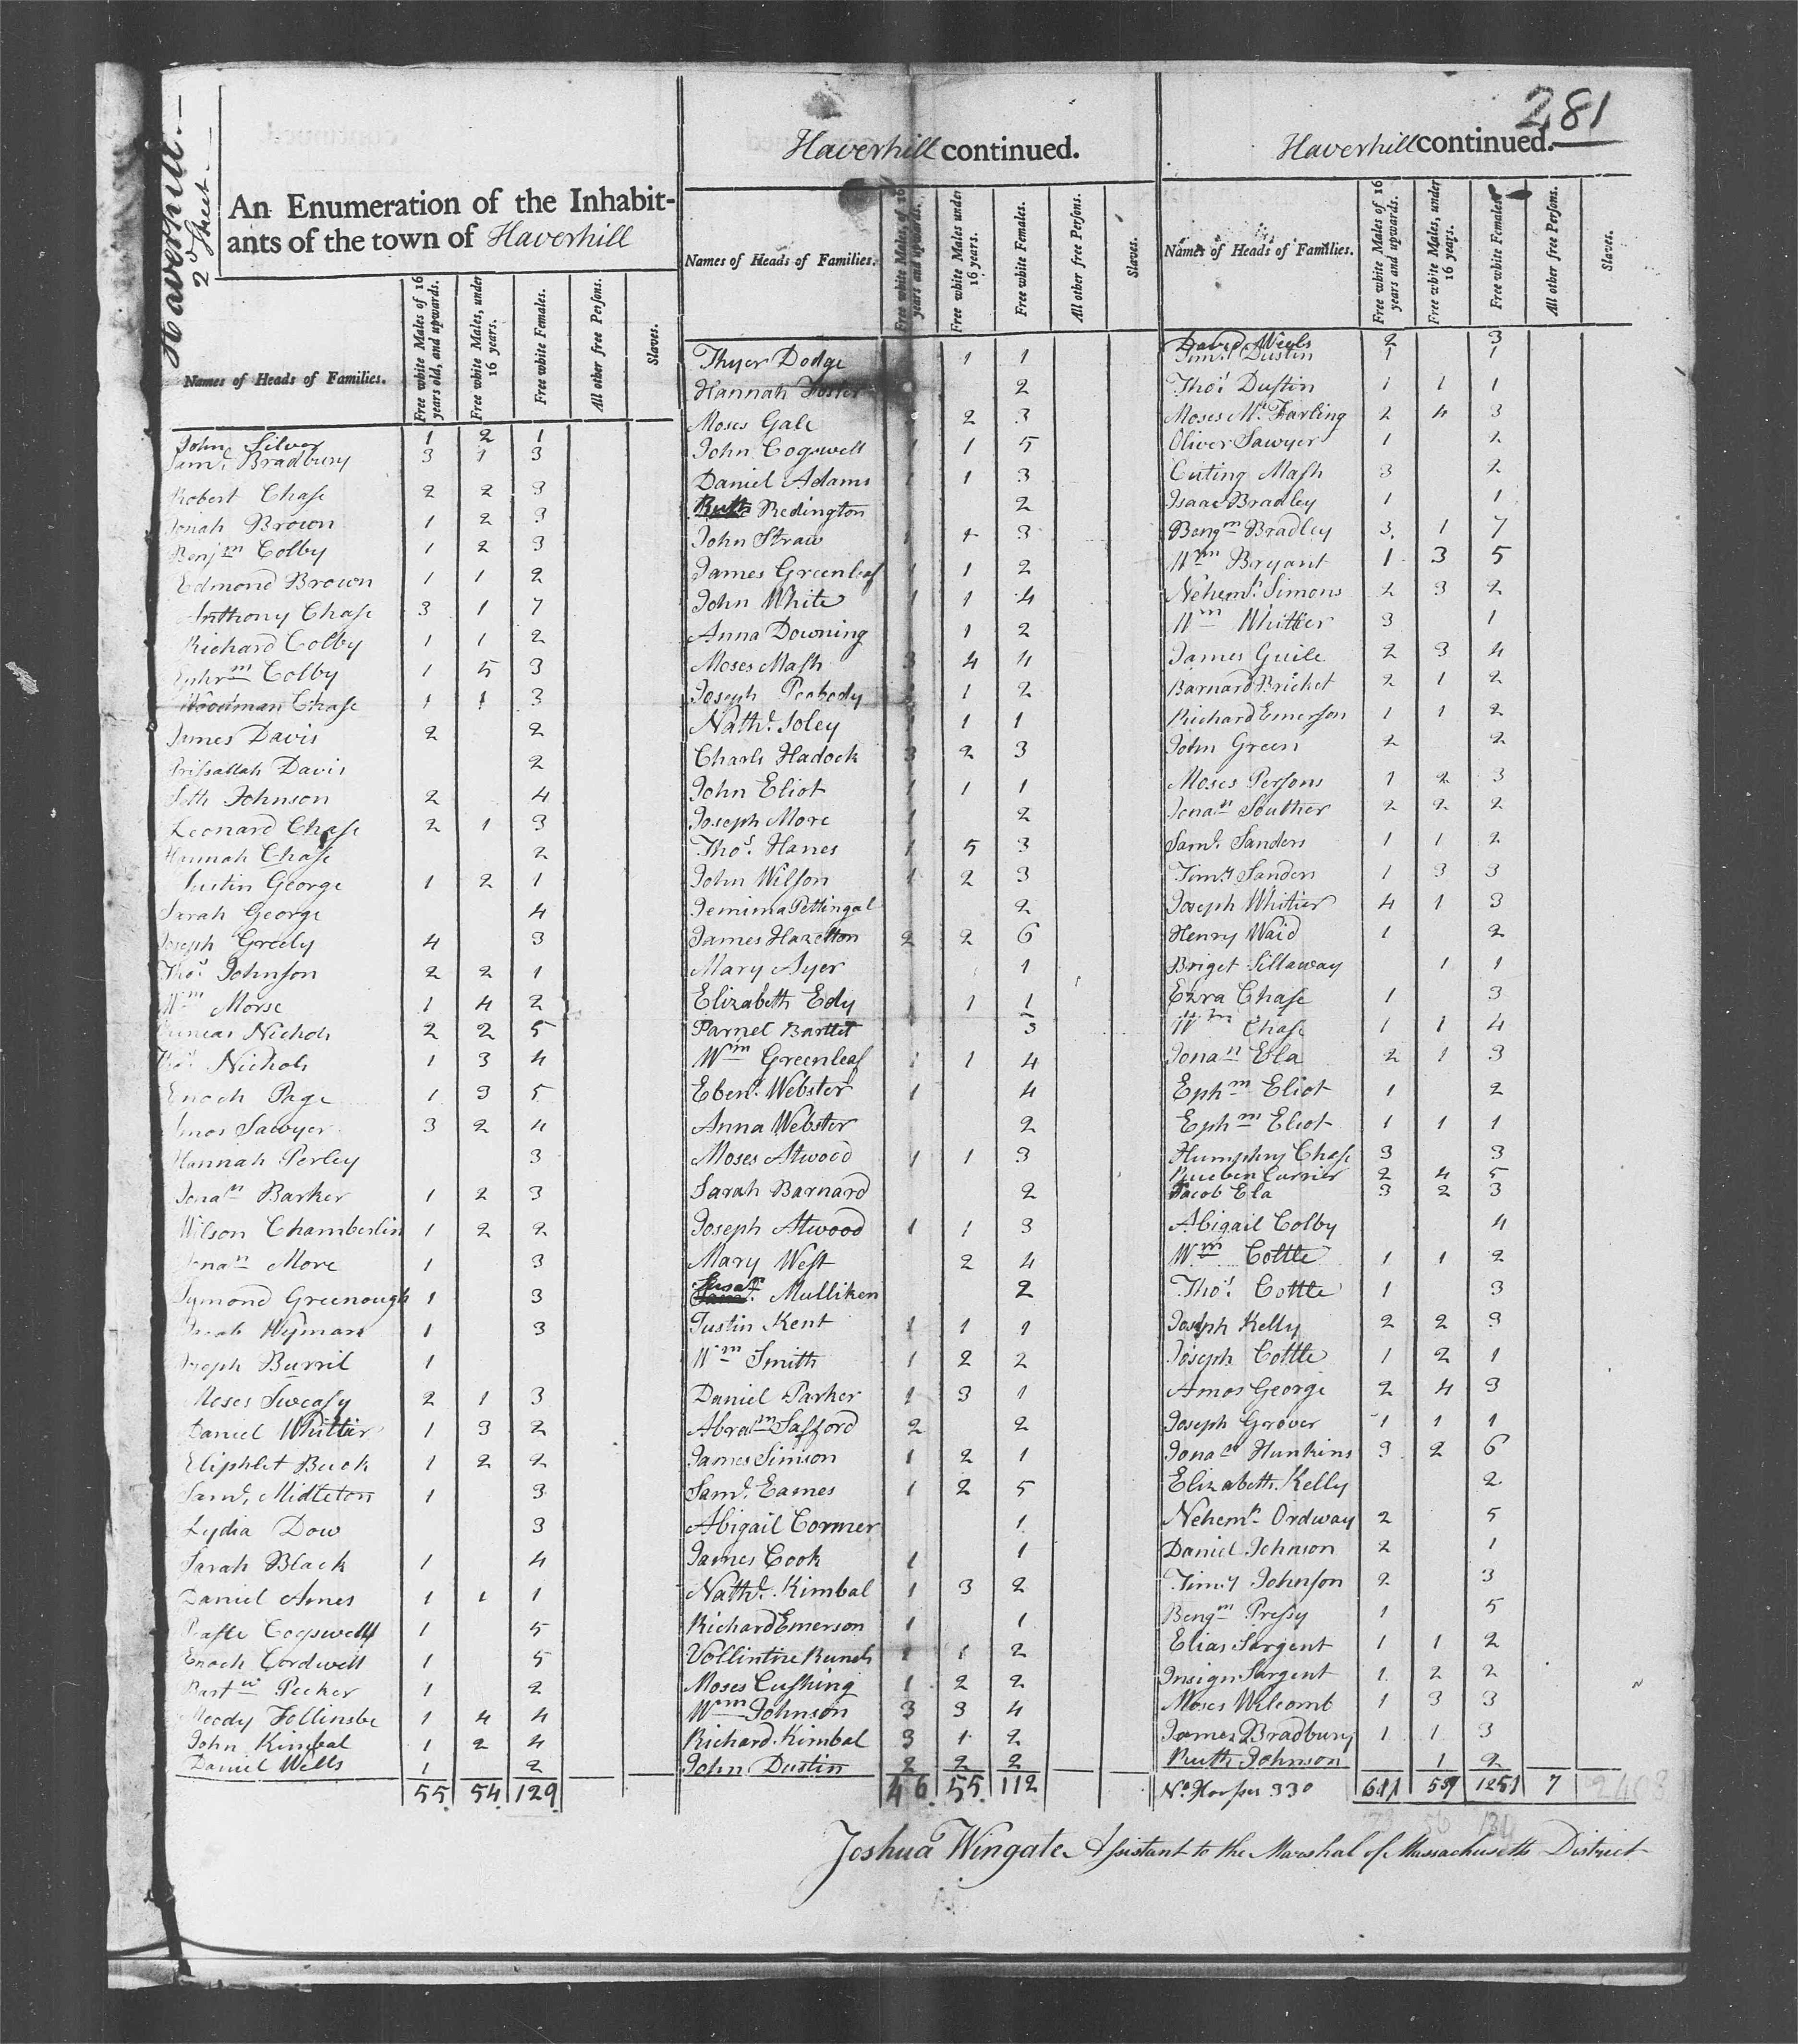 Haverhill.—
2d Sheet.
An Enumeration of the Inhabit-
ants of the town of Haverhill
Names of Heads of Families.
Free white Males of 16 years old, and upwards.
Free white Males, under 16 years.
Free white Females.
All other free Persons.
Slaves.
John Silver 1 2 1
Saml. Bradbury 3 1 3
Robert Chase 2 2 3
Jonah Brown 1 2 3
Benjm Colby 1 2 3
Edmond Brown 1 1 2
Anthony Chase 3 1 7
Richard Colby 1 1 2
Ephrm Colby 1 5 3
Woodman Chase 1 1 3
James Davis 2 2
Prissallah Davis 2
Seth Johnson 2 4
Leonard Chase 2 1 3
Hannah Chase 2
Justin George 1 2 1
Sarah George 4
Joseph Greely 4 3
Thos. Johnson 2 2 1
Wm Morse 1 4 2
Nichols 2 2 5
Thos. Nichols 1 3 4
Enoch Page 1 3 5
Amos Sawyer 3 2 4
Hannah Perley 3
Jonan Barker 1 2 3
Wilson Chamberlin 1 2 2
Jonan More 1 3
Symond Greenough 1 3
Wyman 1 3
Joseph Burril 1
Moses Sweasy 2 1 3
Daniel Whittier 1 3 2
Eliphlet Buck 1 2 2
Saml. Midleton 1 3
Lydia Dow 3
Sarah Black 1 4
Daniel Ames 1 1 1
Cogswell 1 5
Enoch Cordwell 1 5
Bartw Pecker 1 2
Moody Follinsbe 1 4 4
John Kimbal 1 2 4
Daniel Wells 1 2
55. 54. 129.
Haverhill continued.
Names of Heads of Families.
Free white Males, of 16 years and upwards.
Free white Males under 16 years.
Free white Females.
All other free Persons.
Slaves.
Thyer Dodge 1 1
Hannah Foster 2
Moses Gale 2 3
John Cogswell 1 1 5
Daniel Adams 1 1 3
Ruth Redington 2
John Straw 1 1 3
James Greenleaf 1 1 2
John White 1 1 4
Anna Downing 1 2
Moses Mash 3 4 4
Joseph Peabody 1 2
Nathl. Soley 1 1 1
Charls Hadock 3 2 3
John Eliot 1 1 1
Joseph More 1 2
Thos. Hanes 1 5 3
John Wilson 1 2 3
Jemima Pettingal 2
James Hazelton 2 2 6
Mary Ayer 1
Elizabeth Edy 1 1
Parnel Bartlet 3
Wm Greenleaf 1 1 4
Ebenr. Webster 1 4
Anna Webster 2
Moses Atwood 1 1 3
Sarah Barnard 2
Joseph Atwood 1 1 3
Mary West 2 4
Susah. Mulliken 2
Justin Kent 1 1 1
Wm Smith 1 2 2
Daniel Parker 1 3 1
Abram Safford 2 2
James Simson 1 2 1
Saml. Eames 1 2 5
Abigail Cormer 1
James Cook 1 1
Nathl. Kimbal 1 3 2
Richard Emerson 1 1
Vollintire Bunch 1 1 2
Moses Cushing 1 2 2
Wm Johnson 3 3 4
Richard Kimbal 3 1 2
John Dustin 2 2 2
46. 55. 112
281
Haverhill continued.
Names of Heads of Families.
Free white Males of 16 years and upwards.
Free white Males, under 16 years.
Free white Females.
All other free Persons.
Slaves.
David Weels 2 3
Timy. Dustin 1 1
Thos. Dustin 1 1 1
Moses Mc. Farling 2 4 3
Oliver Sawyer 1 2
Cuting Mash 3 2
Isaac Bradley 1 1
Bengm Bradley 3. 1 7
Wm Bryant 1 3 5
Nehemh. Simons 2 3 2
Wm Whittier 3 1
James Guile 2 3 4
Barnard Bricket 2 1 2
Richard Emerson 1 1 2
John Green 2 2
Moses Persons 1 2 3
Jonan Souther 2 2 2
Saml. Sanders 1 1 2
Timy Sanders 1 3 3
Joseph Whitier 4 1 3
Henry Waid 1 2
Briget Sillaway 1 1
Ezra Chase 1 3
Wm Chase 1 1 4
Jonan Ela 2 1 3
Ephm Eliot 1 2
Ephm Eliot 1 1 1
Humphry Chase 3 3
Rueben Currier 2 4 5
Jacob Ela 3 2 3
Abigail Colby 4
Wm Cottle 1 1 2
Thos. Cottle 1 3
Joseph Kelly 2 2 3
Joseph Cottle 1 2 1
Amos George 2 4 3
Joseph Grover 1 1 1
Jonan Hunkins 3 2 6
Elizabeth Kelly 2
Nehemh. Ordway 2 5
Daniel Johnson 2 1
Timy Johnson 2 3
Bengm Pressy 1 5
Elias Sargent 1 1 2
Insign Sargent 1 2 2
Moses Welcomb 1 3 3
James Bradbury 1 1 3
Ruth Johnson 1 2
No. Houses 330 611 559 1251 7 2408
Joshua Wingate Assistant to the Marshal of Massachusetts District